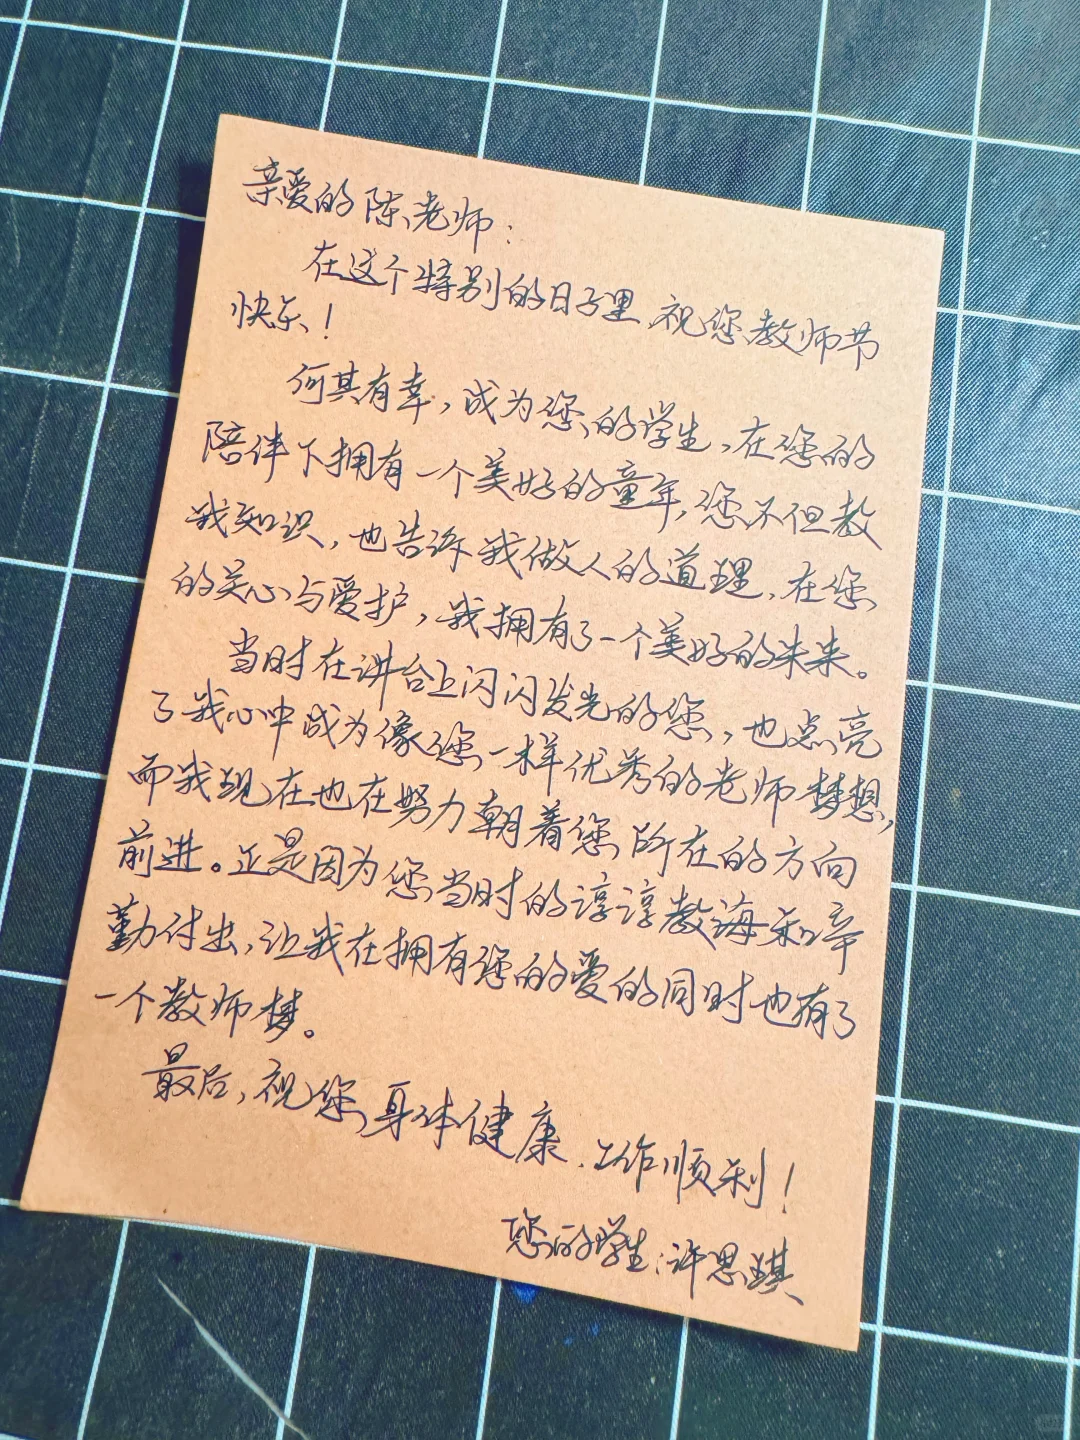 亲爱的陈老师：
在这个特别的日子里,祝您教师节
快乐！
何其有幸，成为您的学生，在您的
陪伴下拥有一个美好的童年，您不但教
我知识，也告诉我做人的道理，在您
的关心与爱护，我拥有了一个美好的未来。
当时在讲台上闪闪发光的您，也点亮
了我心中成为像您一样优秀的老师梦想，
而我现在也在努力朝着您所在的方向
前进。正是因为您当时的谆谆教诲和辛
勤付出，让我在拥有您的爱的同时也有了
一个教师梦。
最后，祝您身体健康，工作顺利！
您的学生：许思琪